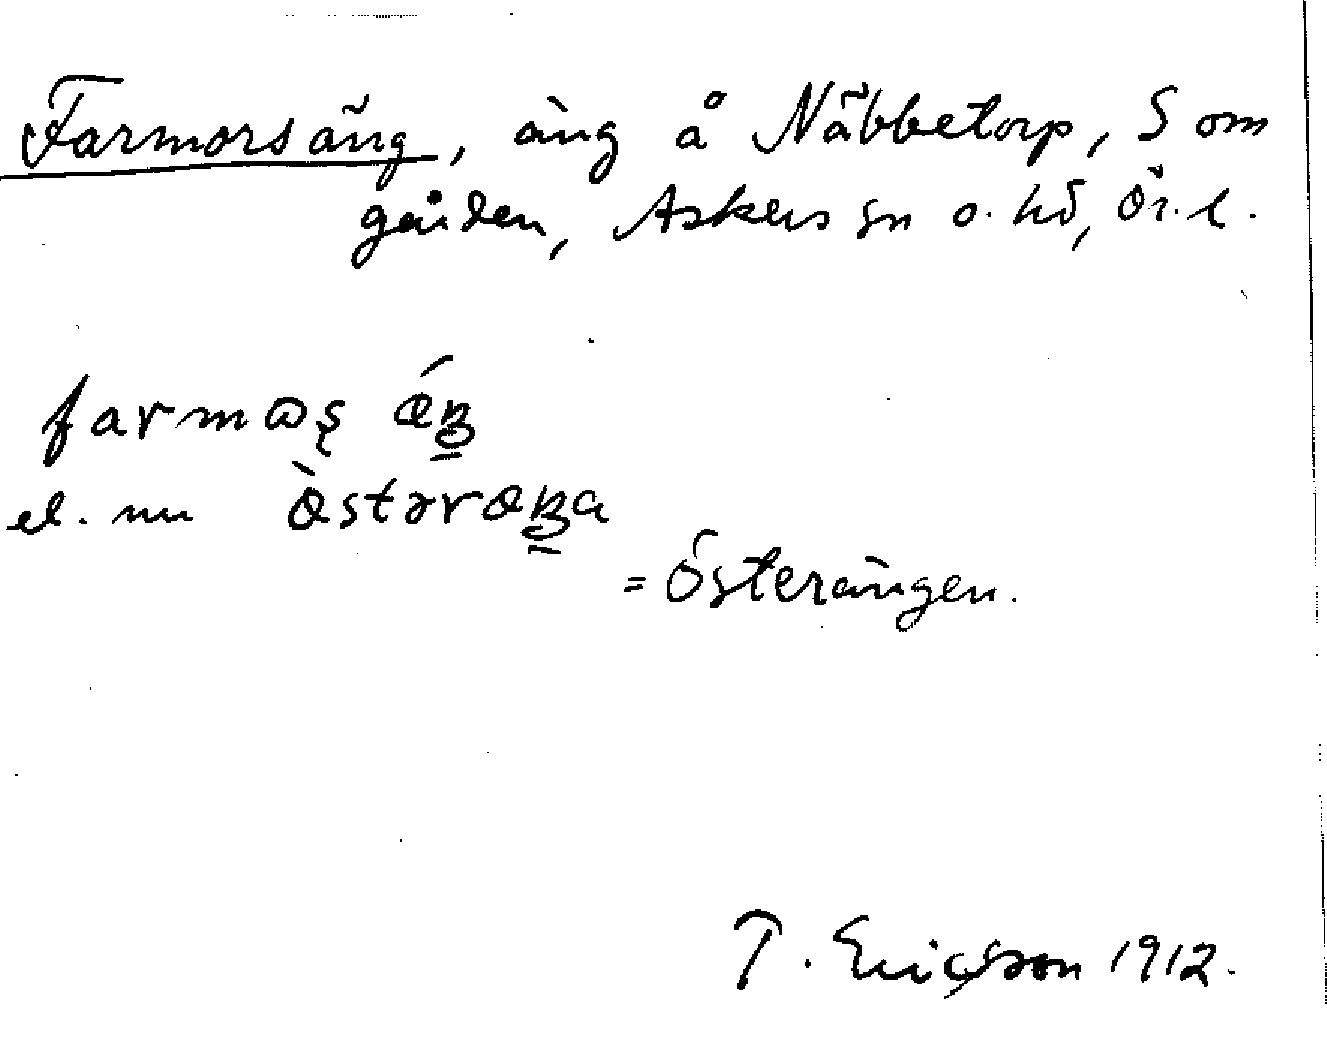 Farmorsäng, äng å Näbbetorp, S om
gården, Askers sn o. hd, Ör. l.
farmɷʂ ǽŋ
el. nu œ̀stərœŋa
= Österängen.
T. Ericsson 1912.